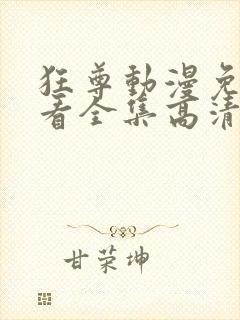 狂尊動漫免
看全集高清
甘荣坤